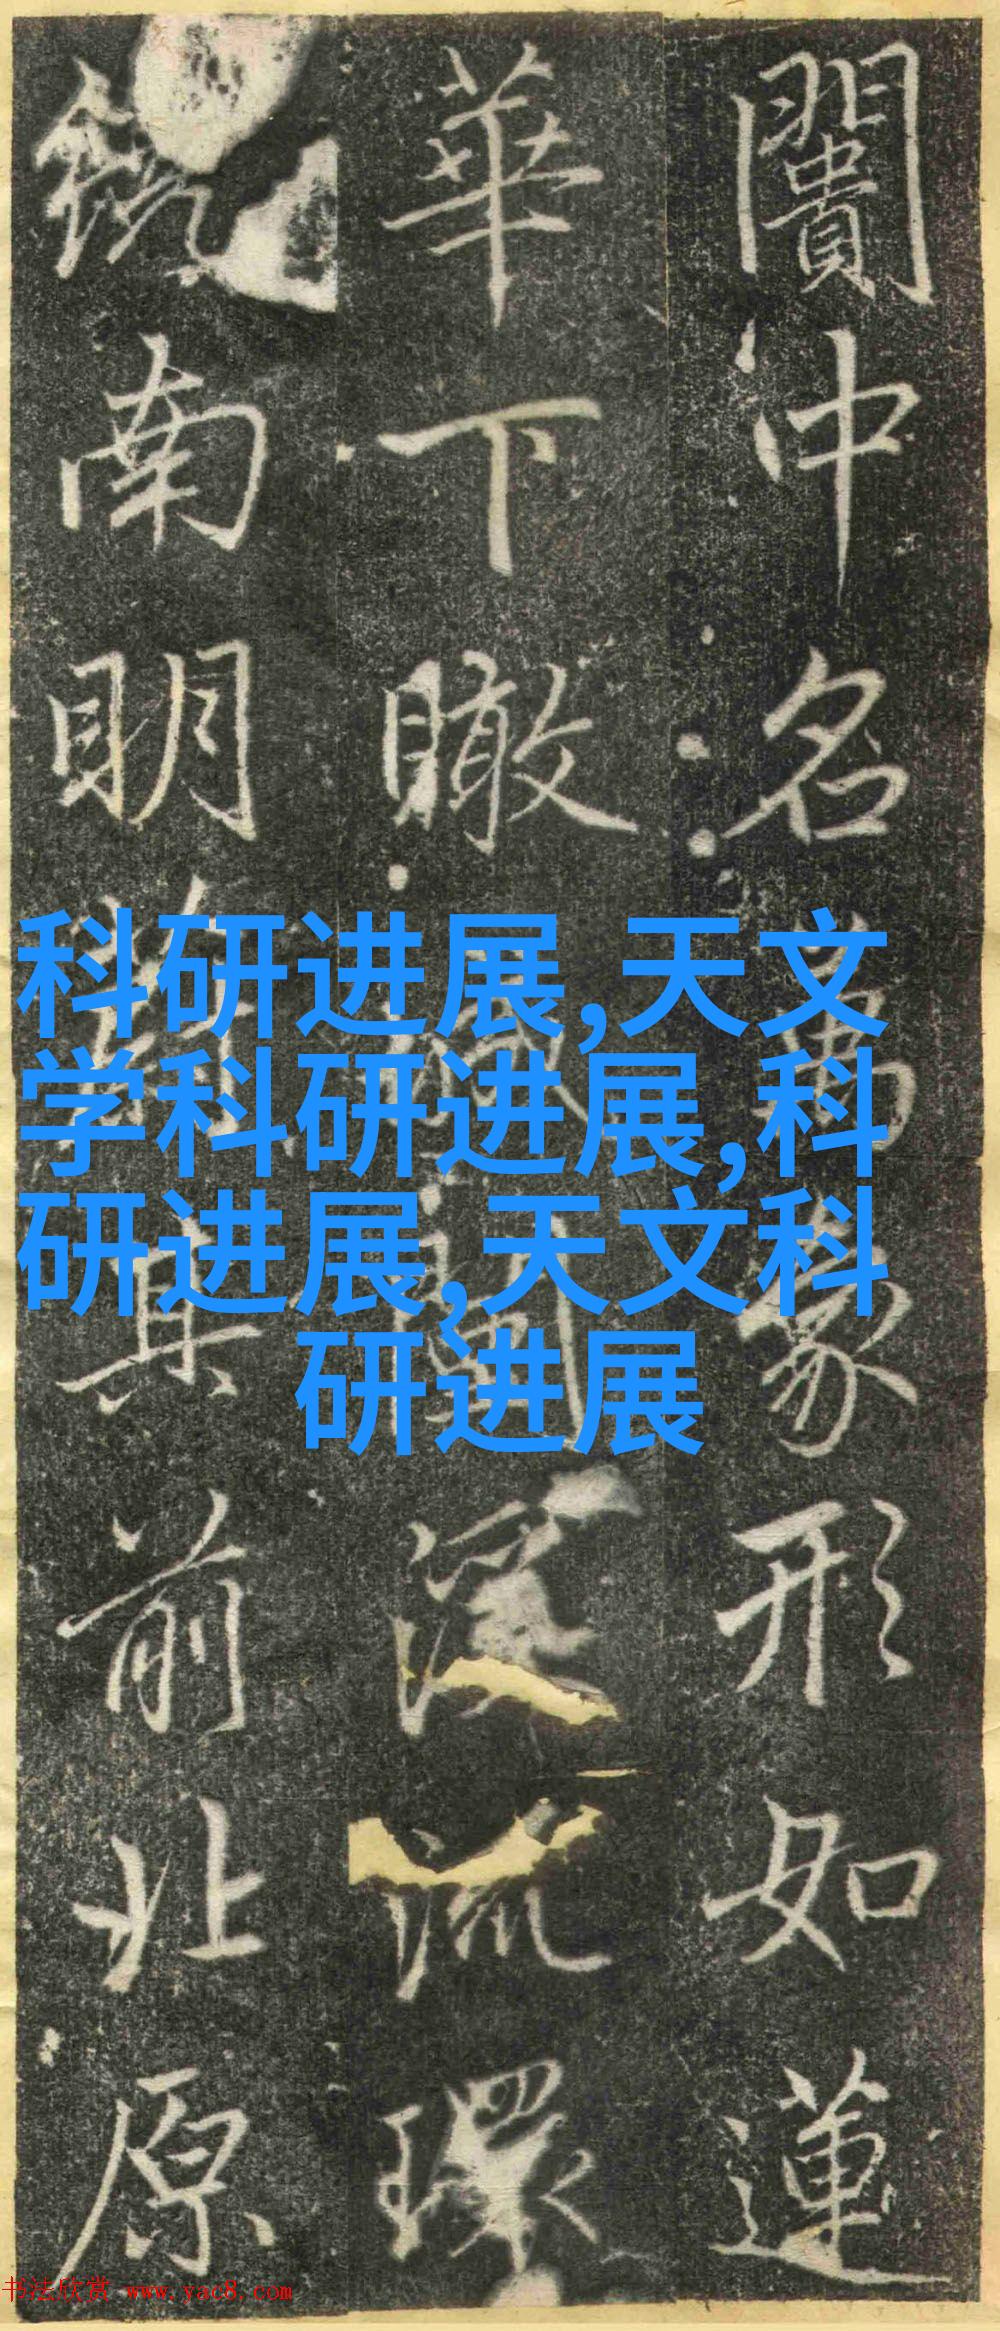 闠沖名為象形如蓮
華下瞰
流環
南明
其前北原
科研进展,天文
学科研进展,科
研进展,天文科
研进展
书法欣赏 www.yac8.com